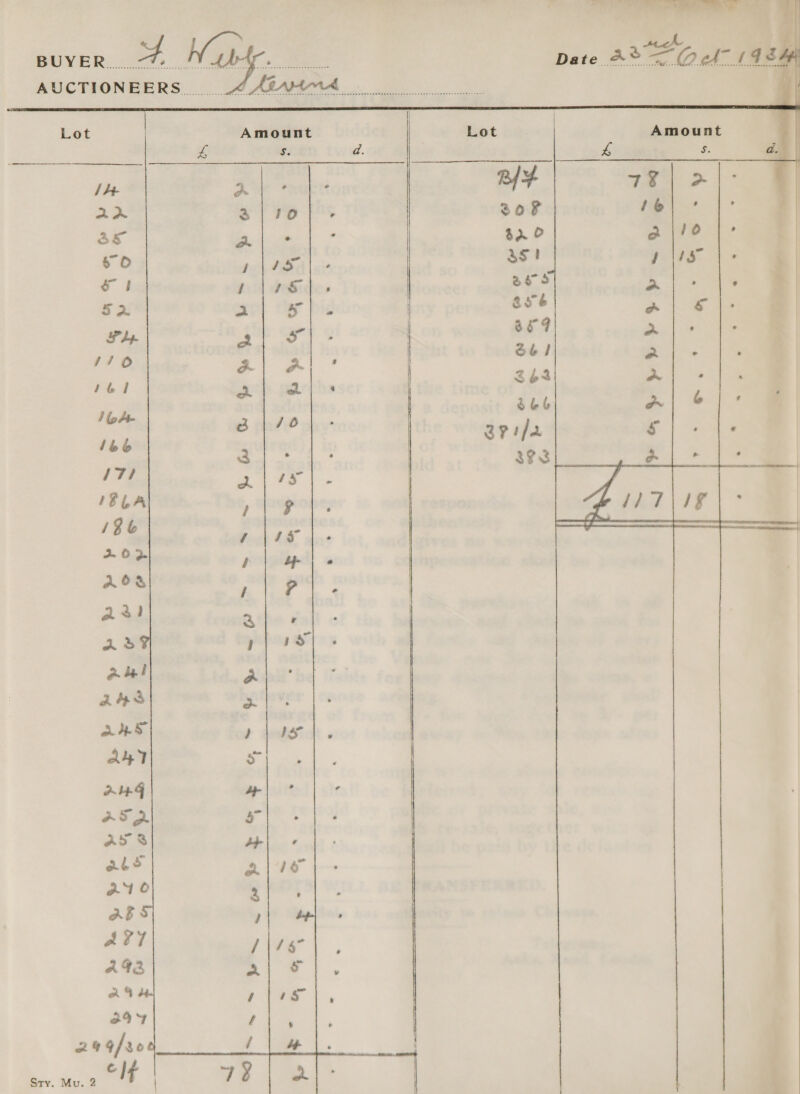 BUYER
Date 23rd Oct 1934
AUCTIONEERS Stevens
Lot Amount Lot Amount
£ s. d. £ s. d.
14 2 . . B/F 78 2 .
22 3 10 . 308 16 . .
35 2 . . 320 2 10 .
50 1 15 . 351 1 15 .
51 1 15 . 355 2 . .
52 2 5 . 356 2 5 .
54 2 5 . 359 2 . .
110 2 2 . 361 2 . .
161 2 2 . 363 2 . .
164 3 10 . 366 2 6 .
166 3 . . 381/2 5 . .
171 2 15 . 383 2 . .
186A 1 8 . £ 117 18 .
186 1 15 .
202 1 4 .
203 1 8 .
231 3 . .
238 1 15 .
241 2 . .
243 2 . .
245 1 15 .
247 5 . .
249 4 . .
252 5 . .
253 4 . .
265 2 15 .
270 3 . .
285 1 4 .
287 1 15 .
293 2 5 .
294 1 15 .
297 1 . .
299/300 1 4 .
C/f 78 2 .
STY. MU. 2